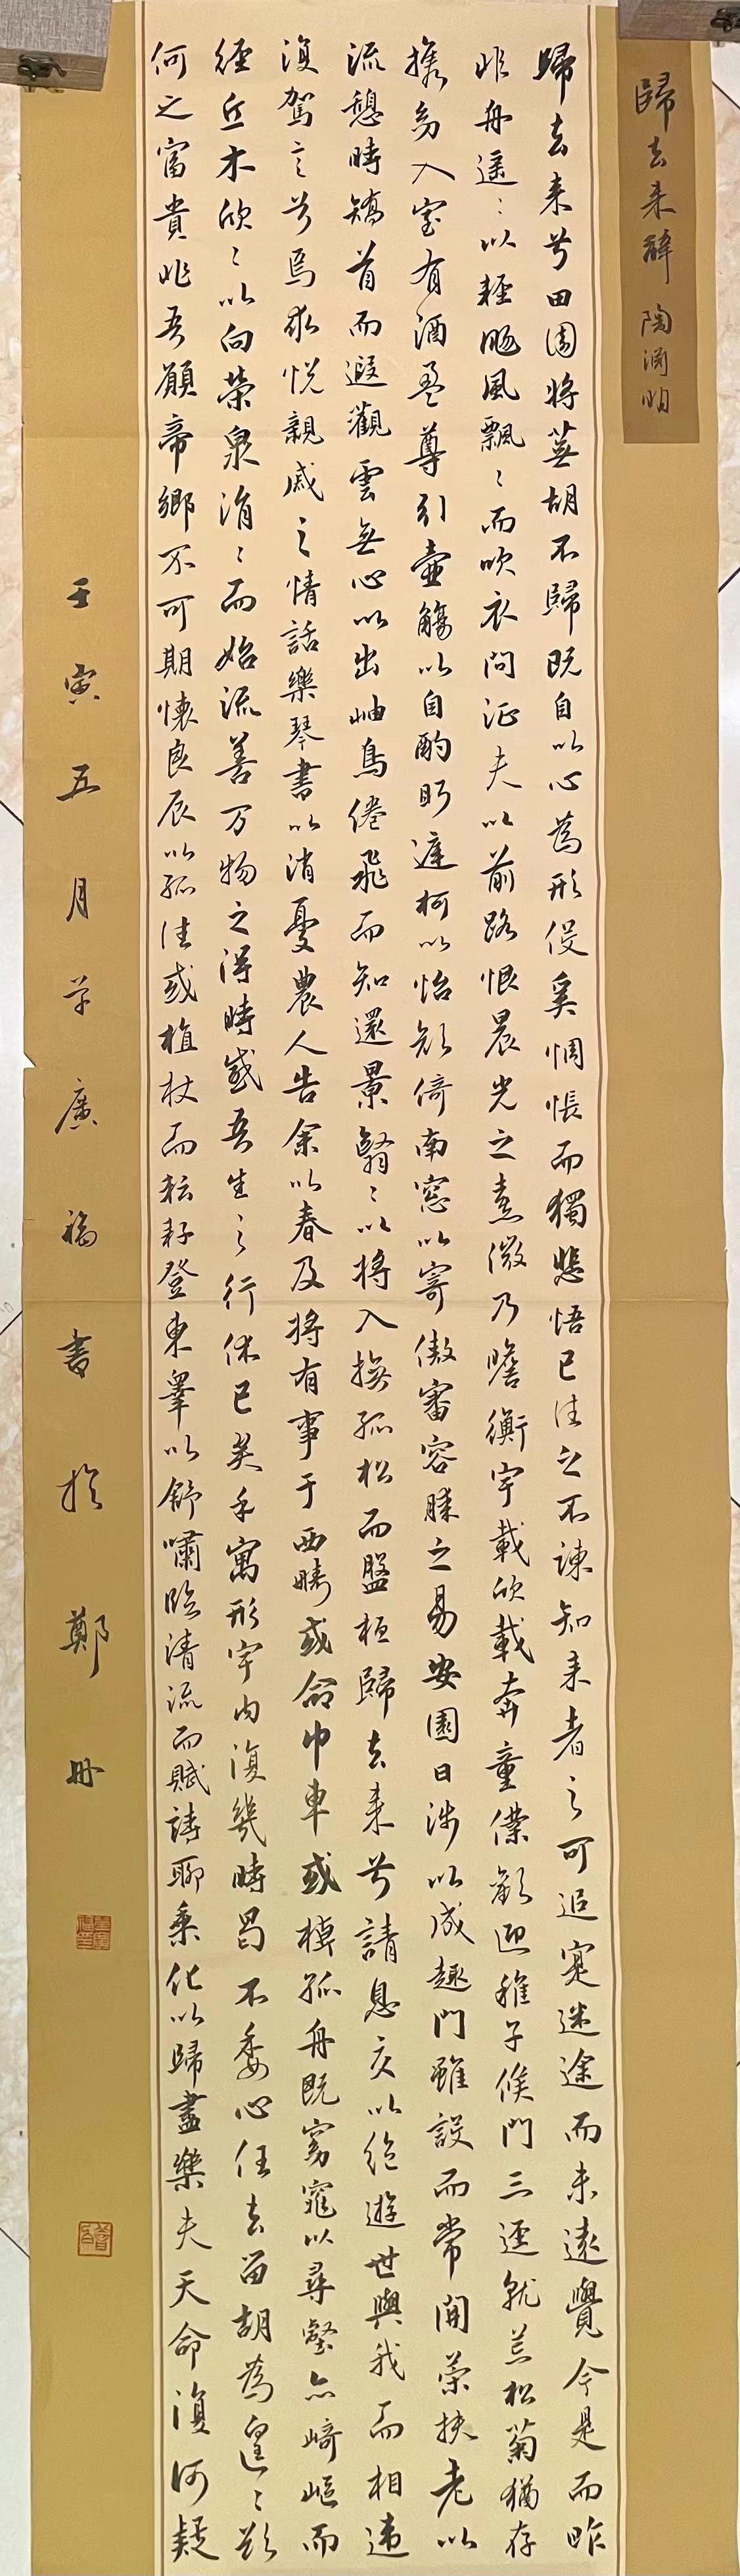 歸去来辭 陶淵明
歸去来兮田園将蕪胡不歸既自以心為形役奚惆悵而獨悲悟已往之不諫知来者之可追寔迷途而未遠覺今是而昨
非舟遥〻以輕颺風飄〻而吹衣问征夫以前路恨晨光之熹微乃瞻衡宇載欣載奔童僕歡迎稚子候門三逕就荒松菊猶存
攜幼入室有酒盈尊引壷觴以自酌眄庭柯以怡顔倚南窓以寄傲審容膝之易安園日涉以成趣門雖設而常關策扶老以
流憩時矯首而遐觀雲無心以出岫鳥倦飛而知還景翳〻以将入撫孤松而盤桓歸去来兮請息交以絶遊世與我而相違
復駕言兮焉求悦親戚之情話樂琴書以消憂農人告余以春及将有事于西疇或命巾車或棹孤舟既窈窕以尋壑亦崎嶇而
經丘木欣〻以向榮泉涓〻而始流善万物之得時感吾生之行休已矣乎寓形宇内復幾時曷不委心任去留胡為遑〻欲
何之富貴非吾願帝鄉不可期懷良辰以孤往或植杖而耘耔登東皋以舒嘯臨清流而賦詩聊乘化以歸盡樂夫天命復何疑
壬寅五月芊廣福书於鄭州